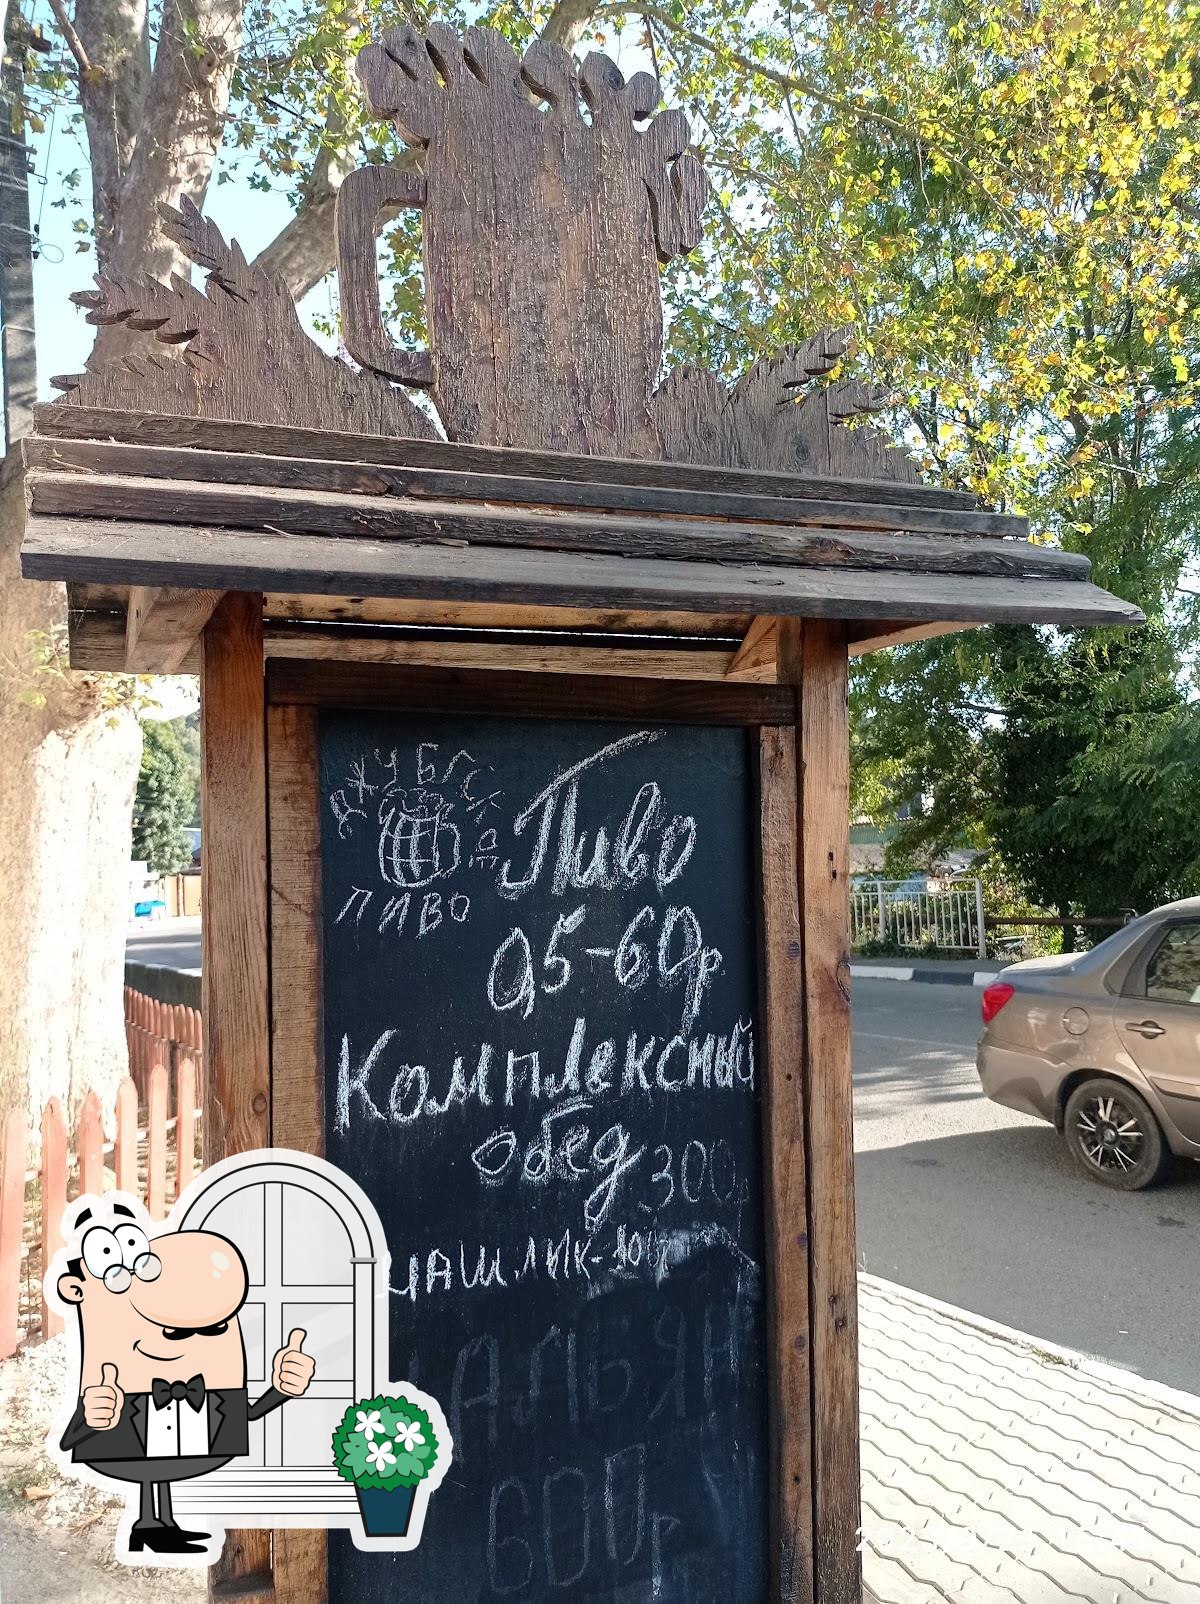 ДЖУБГСКОЕ
ПИВО
Пиво
0,5-60р
Комплексный
обед 300
ШАШЛЫК-
600р